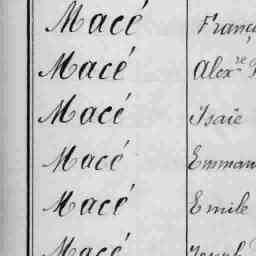 Macé Franç
Macé Alex.re
Macé Isaïe
Macé Emman
Macé Emile
Macé Joseph